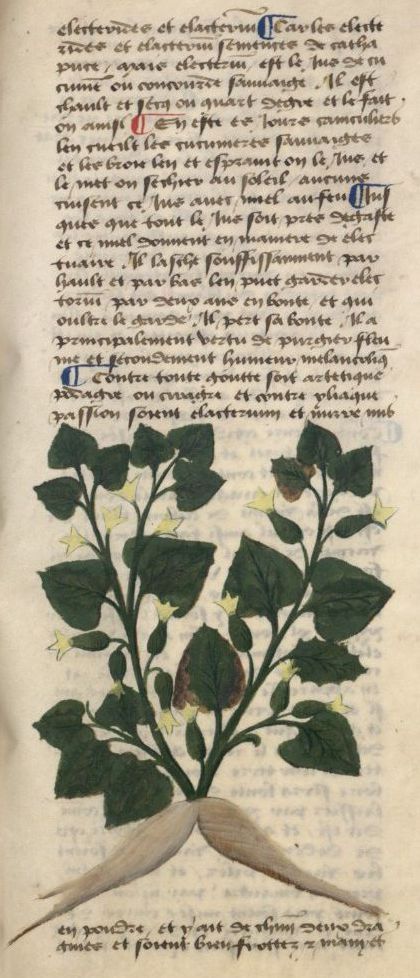 electerides et elacteriu Car les electe
rides et elacteriu semences de catha
puce, mais electeriu, est le Jus de cu
cumee ou concourde sauuaige. Il est
chault et secq ou quart degre et le fait
on ainsi En este es Jours caniculiers
len cueilt les cucumeres sauuaiges
et les broie len et espraint on le Jus, et
le met on sechier au soleil, aucuns
cuisent ce Jus auec miel au feu Jus
ques que tout le Jus soit pres degaste
et ce miel donnent en maniere de elec
tuaire. Il lasche souffissamment, par
hault et par bas len puet garder elec
toriu par deux ans en bonte, et qui
oultre le garde. Il pert sa bonte. Il a
principalement vertu de purgier fleu
me et secondement humeur melancoliq
Contre toute goutte soit artetique
podagre ou ciragre et contre yliaque
passion soient elacterium et mirre mis
en pouldre, et y ait de chun deux dra
gmes et soient bien frottez